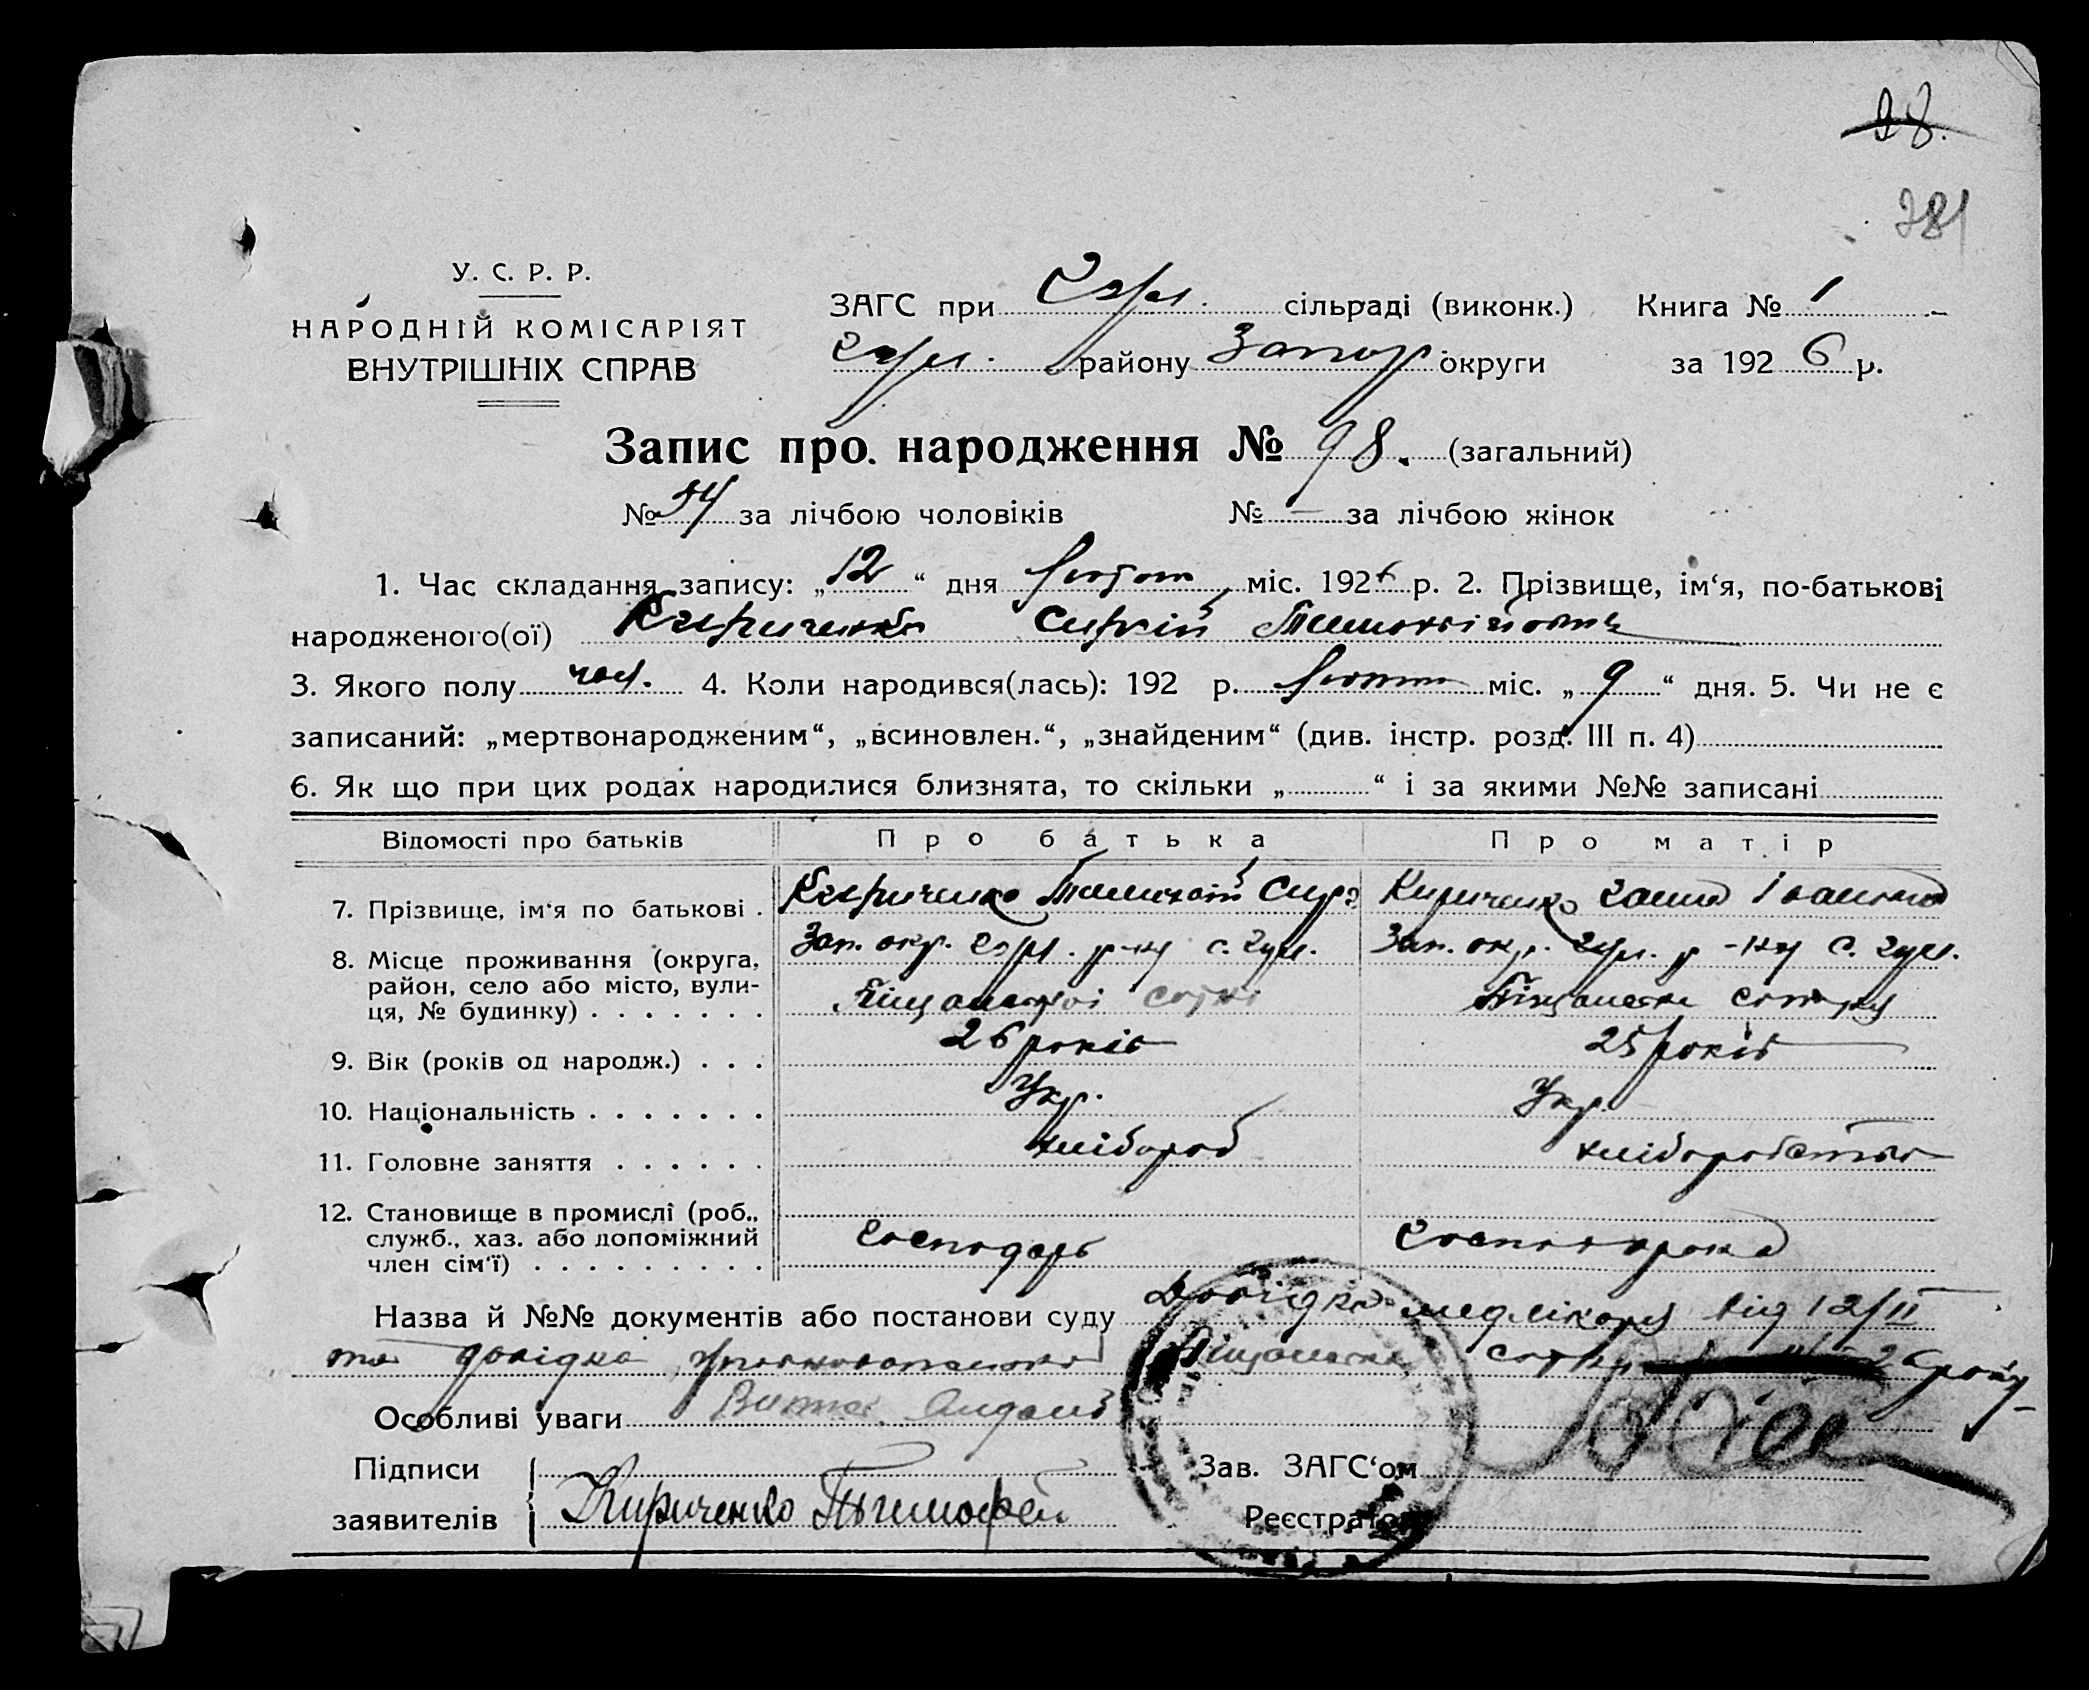 98.
381
У. С. Р. Р.
НАРОДНІЙ КОМІСАРІЯТ
ВНУТРІШНІХ СПРАВ
ЗАГС при Гул. сільраді (виконк.) Книга № 1
Гул. району Запор. округи за 1926 р.
Запис про народження № 98. (загальний)
№ 54 за лічбою чоловіків № — за лічбою жінок
1. Час складання запису: „12“ дня лютого міс. 1926 р. 2. Прізвище, ім‘я, по-батькові
народженого(ої) Кириченко Сиргій
3. Якого полу чол. 4. Коли народився(лась): 192 р. лютого міс. „9“ дня. 5. Чи не є
записаний: „мертвонародженим“, „всиновлен.“, „знайденим“ (див. інстр. розд. III п. 4)
6. Як що при цих родах народилися близнята, то скільки „ “ і за якими №№ записані
Відомості про батьків Про батька Про матір
7. Прізвище, ім‘я по батькові . Кириченко Кириченко Ганна Івановна
8. Місце проживання (округа, Зап. окр. Гул. р-ну с. Гул. Зап. окр. Гул. р-ну с. Гул.
район, село або місто, вули-
ця, № будинку) . . . . . . . Піщанської сотні Піщанська сотня
9. Вік (років од народж.) . . . 26 років 25 років
10. Національність . . . . . . . Укр. Укр.
11. Головне заняття . . . . . . хлібороб хліборобство
12. Становище в промислі (роб.,
служб., хаз. або допоміжний Господарь Господарка
член сім‘ї) . . . . . . . . .
Назва й №№ документів або постанови суду Довідка від 12/II
та довідка Піщанської сотні 26 року
Особливі уваги
Підписи Зав. ЗАГС‘ом
заявителів Кириченко Тымофей Реєстратор